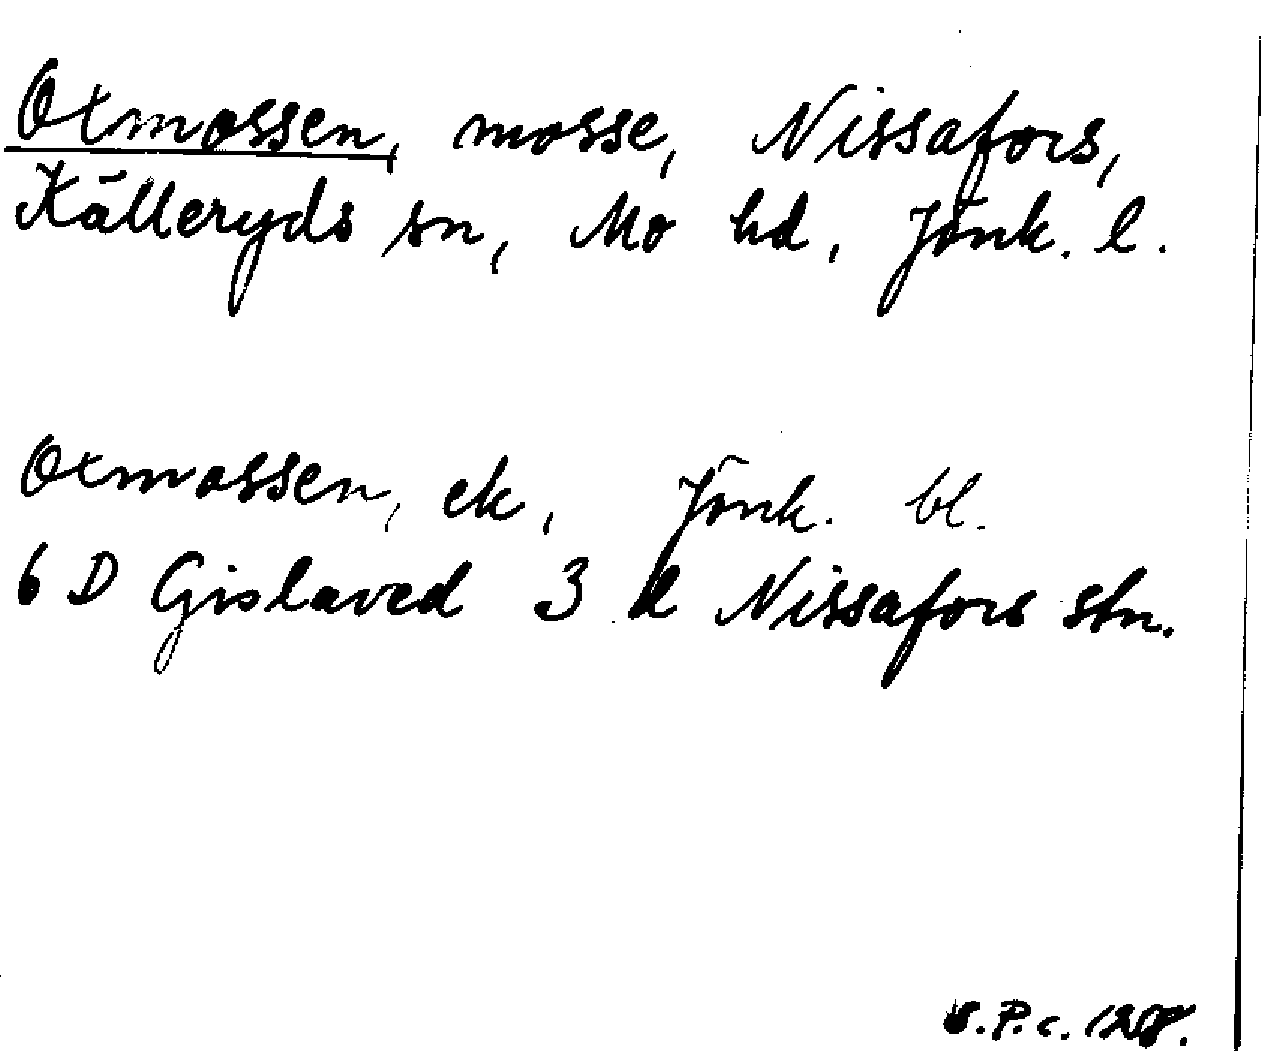 Oxmossen, mosse, Nissafors,
Källeryds sn, Mo hd, Jönk. l.
Oxmossen, ek, Jönk. bl.
6 D Gislaved 3 d Nissafors stn.